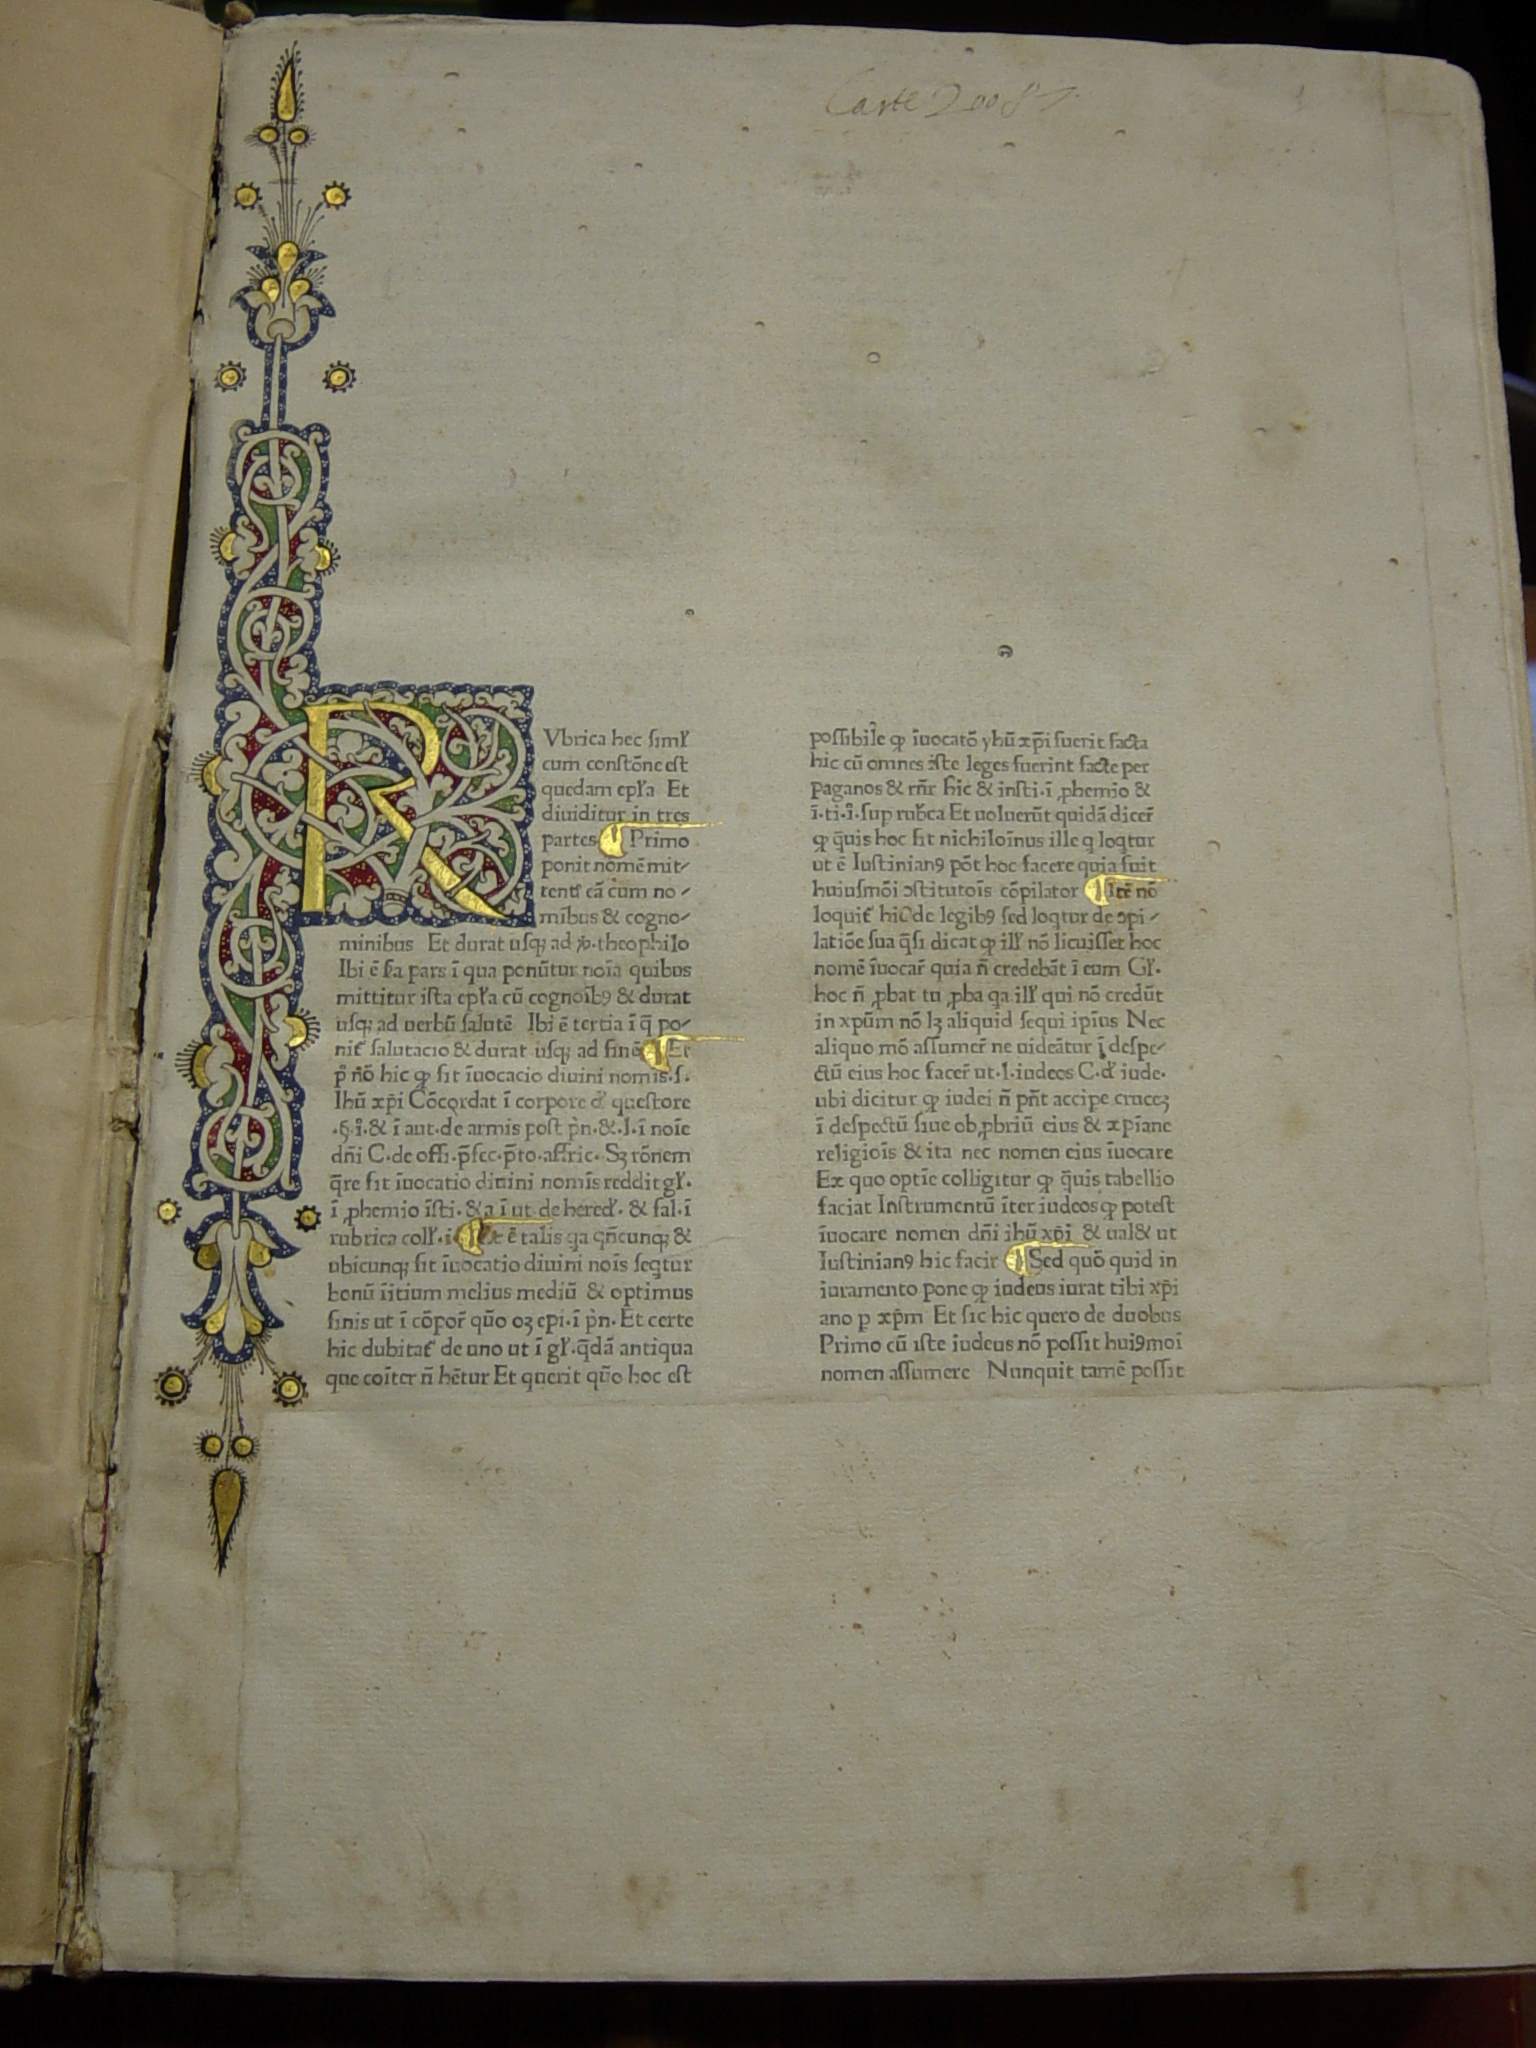 Carte 2008
RVbrica hec simłr
cum constōne est
quedam epła Et
diuiditur in tres
partes Primo
ponit nomē mit⸗
tentꝭ eā cum no⸗
mībus & cogno⸗
minibus Et durat usqꝫ ad ꝟ·theophilo
Ibi ē ſa pars ī qua ponūtur noīa quibus
mittitur ista epła cū cognoībꝰ & durat
usqꝫ ad uerbū salutē Ibi ē tertia ī q̄ po⸗
nit̄ salutacio & durat usqꝫ ad finē Et
ꝓ nō hic ꝙ sit īuocacio diuini nomīs·s·
Ihū xp̄i Cōcordat ī corpore d' questore
·§·i·& ī aut·de armis post p̄n·&·l·ī noīe
dñi C·de offi·p̄fec·p̄to·affric· Sꝫ rōnem
q̄re sit īuocatio diuini nomīs reddit gł·
ī ꝓhemio īsti·&a ī ut de hered'·& fal·ī
rubrica coll'·i· Et ē talis qa qn̄cunqꝫ &
ubicunqꝫ sit īuocatio diuini noīs seqtur
bonū īitium melius mediū & optimus
finis ut ī cōpor̄ quō oꝫ epi·ī p̄n· Et certe
hic dubitat̄ de uno ut ī gł·q̄dā antiqua
que coīter n̄ hētur Et querit quō hoc est
possibile ꝙ īuocatō yhū xp̄i fuerit facta
hic cū omnes iste leges fuerint facte per
paganos & rn̄r hic & insti·ī ꝓhemio &
ī·ti·i·sup rubca Et uoluerūt quidā dicer̄
ꝙ q̄uis hoc sit nichiloīnus ille q loqtur
ut ē Iustinianꝰ pōt hoc facere quia fuit
huiusmōi ↄstitutoīs cōpilator Itē nō
loquit̄ hic de legibꝰ sed loqtur de ↄpi⸗
latiōe sua q̄si dicat ꝙ ill' nō licuisset hoc
nomē īuocar̄ quia n̄ credebāt ī eum Gł·
hoc n̄ ꝓbat tu ꝓba qa ill' qui nō credūt
in xpūm nō lꝫ aliquid sequi ipīus Nec
aliquo mō assumer̄ ne uideātur ī despe⸗
ctū eius hoc facer̄ ut·l·iudeos C·d' iude·
ubi dicitur ꝙ iudei n̄ pn̄t accipe crucez
ī despectū siue obꝓbriū eius & xpīane
religioīs & ita nec nomen eius īuocare
Ex quo optīe colligitur ꝙ q̄uis tabellio
faciat Instrumentū īter iudeos ꝙ potest
īuocare nomen dn̄i ihū xp̄i & ual& ut
Iustinianꝰ hic facit Sed quō quid in
iuramento pone ꝙ iudeus iurat tibi xp̄i
ano p xp̄m Et sic hic quero de duobus
Primo cū iste iudeus nō possit huiꝰmoī
nomen assumere Nunquit tamē possit